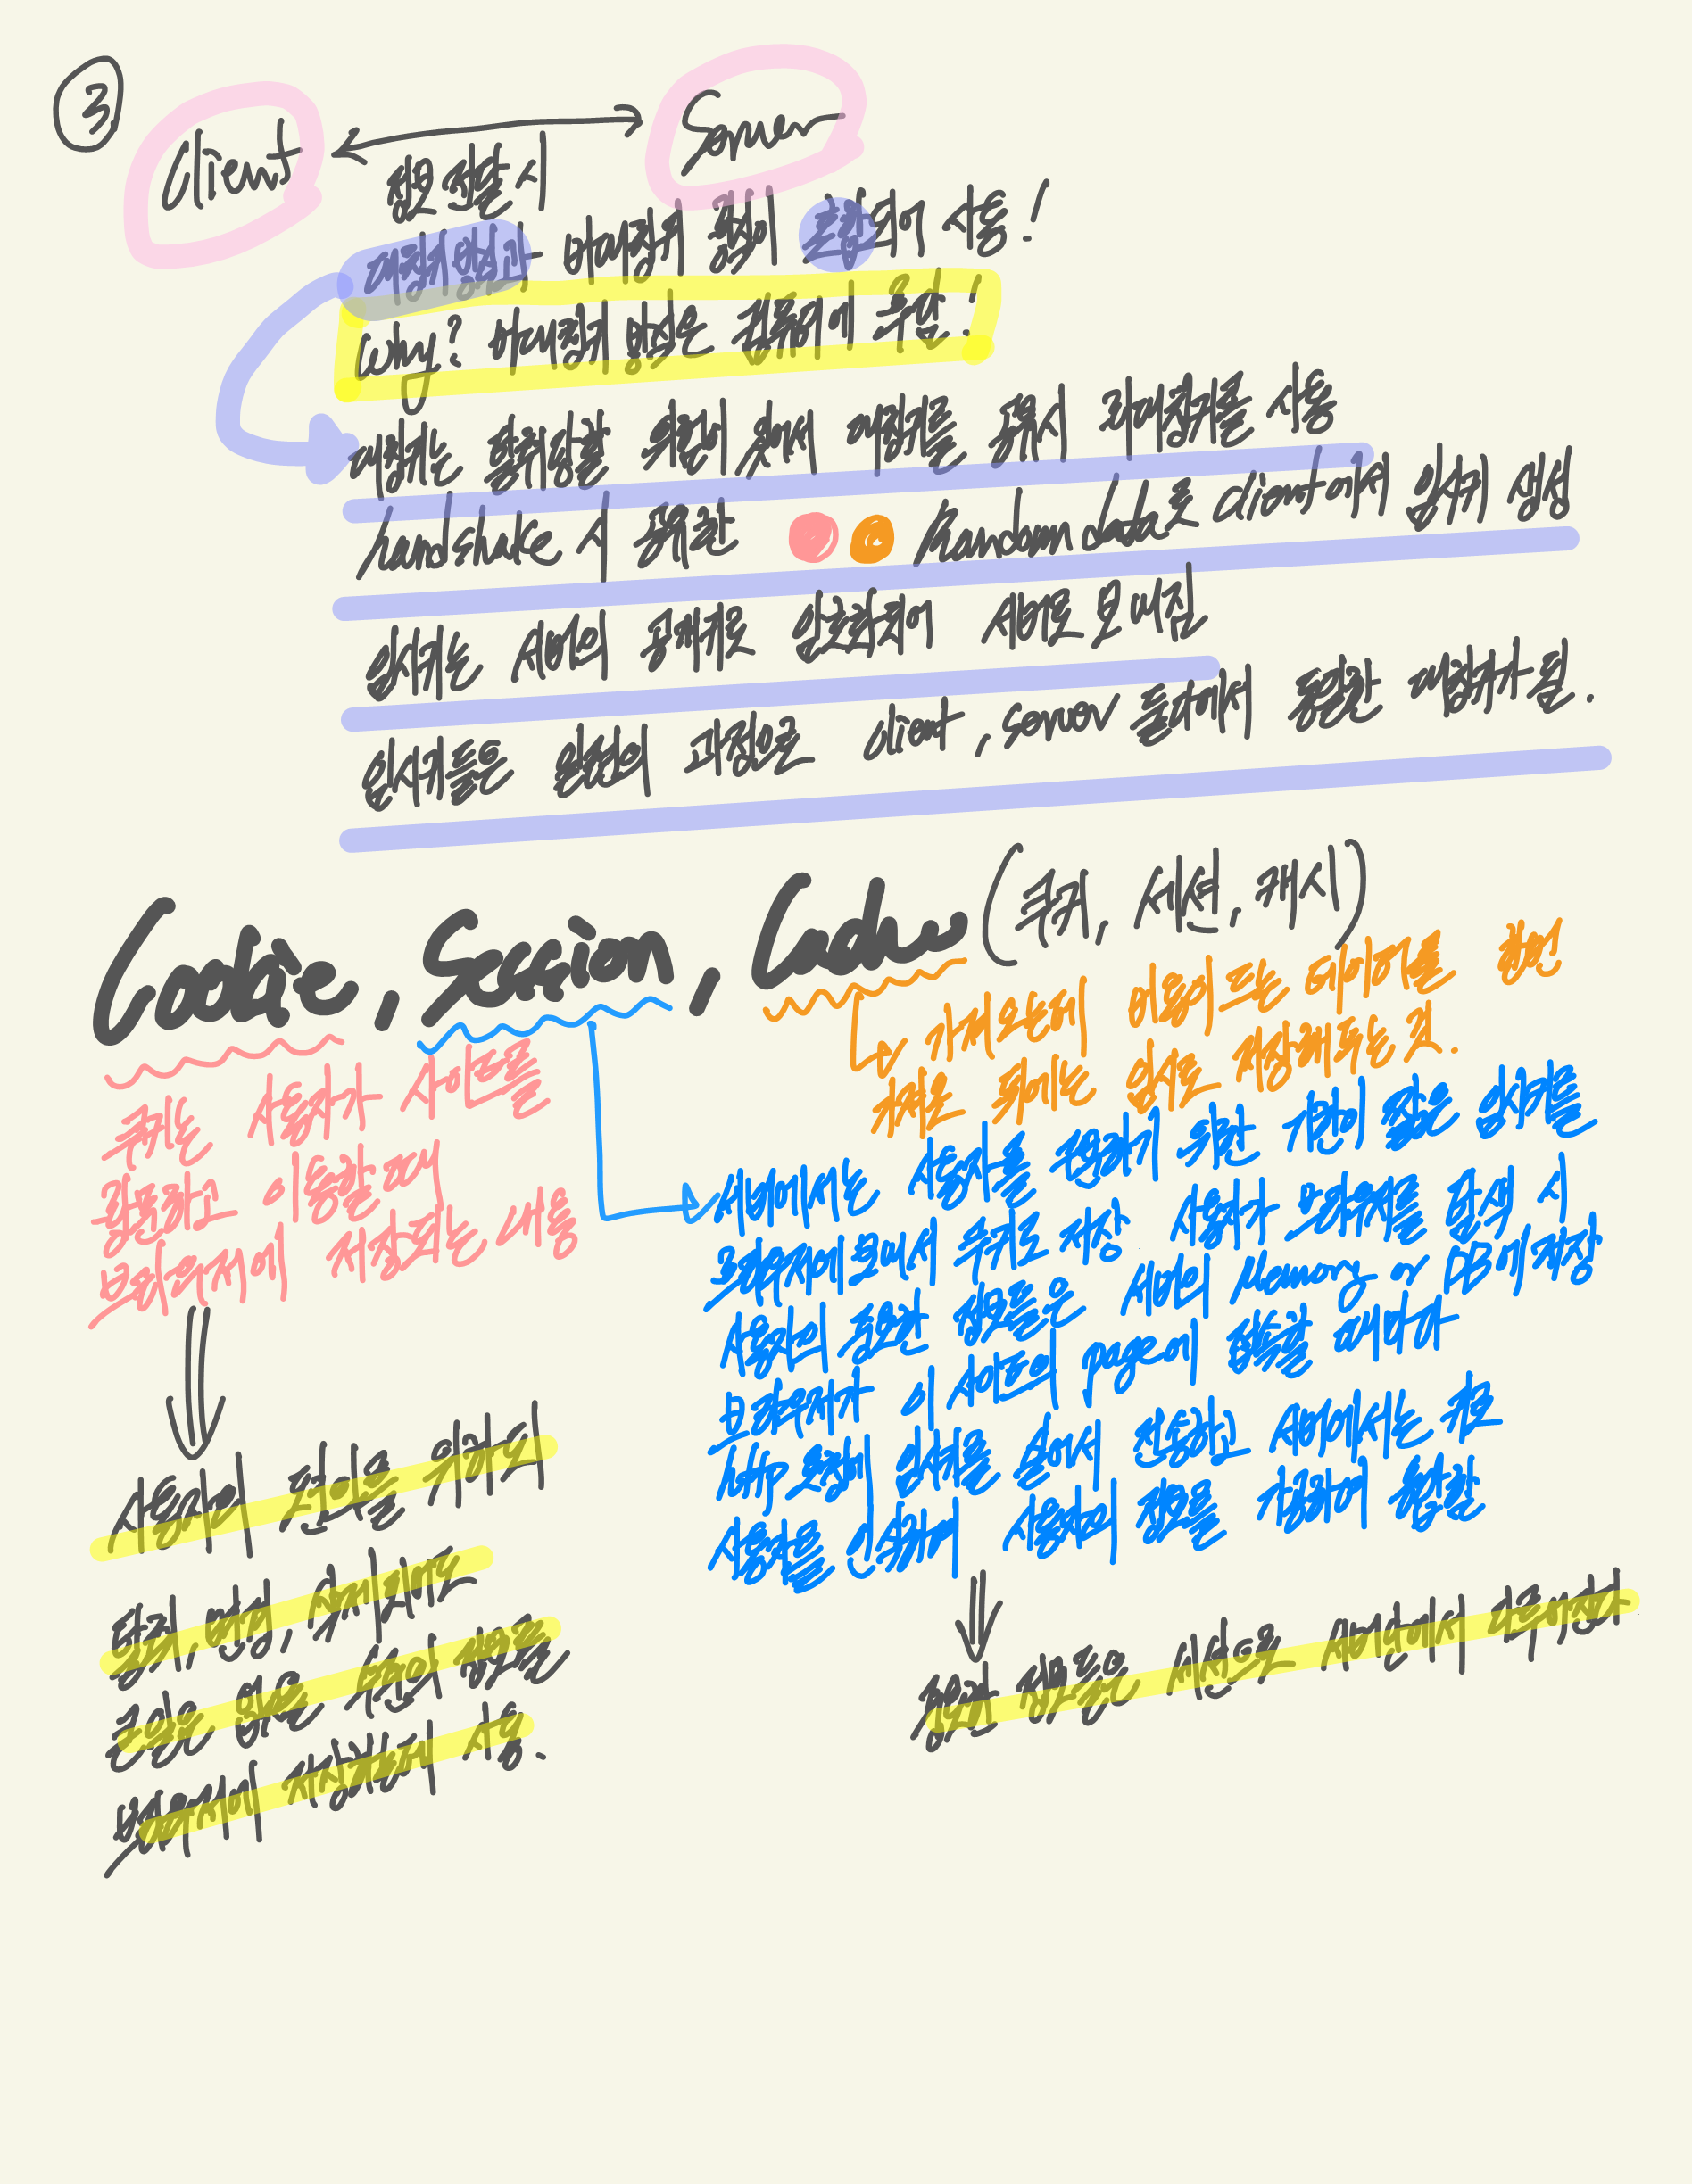 ③
Client ↔ Server
정보 전달 시
대칭키 방식과 비대칭키 방식이 혼합되어 사용!
Why? 비대칭키 방식은 컴퓨터에 부담!
대칭키는 탈취당할 위험이 있어서 대칭키를 공유시 비대칭키를 사용
handshake 시 공유한 Random data로 client에서 임시키 생성
임시키는 서버의 공개키로 암호화되어 서버로 보내짐
임시키들은 일련의 과정으로 client, server 둘다에서 동일한 대칭키가 됨.
Cookie, Session, Cache (쿠키, 세션, 캐시)
가져오는데 비용이 드는 데이터를 한번
가져온 뒤에는 임시로 저장해두는 것.
쿠키는 사용자가 사이트를
방문하고 이동할 때
브라우저에 저장되는 내용
사용자의 편의를 위하되
탈취, 변경, 삭제되어도
큰일은 없을 수준의 정보를
브라우저에 저장하는데 사용.
서버에서는 사용자를 구분하기 위한 기한이 짧은 임시키를
브라우저에 보내서 쿠키로 저장 사용자가 브라우저를 탐색 시
사용자의 중요한 정보들은 서버의 Memory or DB에 저장
브라우저가 이 사이트의 page에 접속할 때마다
http 요청에 임시키를 실어서 전송하고 서버에서는 키로
사용자를 인식하여 사용자의 정보를 가공하여 응답함
중요한 정보들은 세션으로 서버단에서 다루어진다